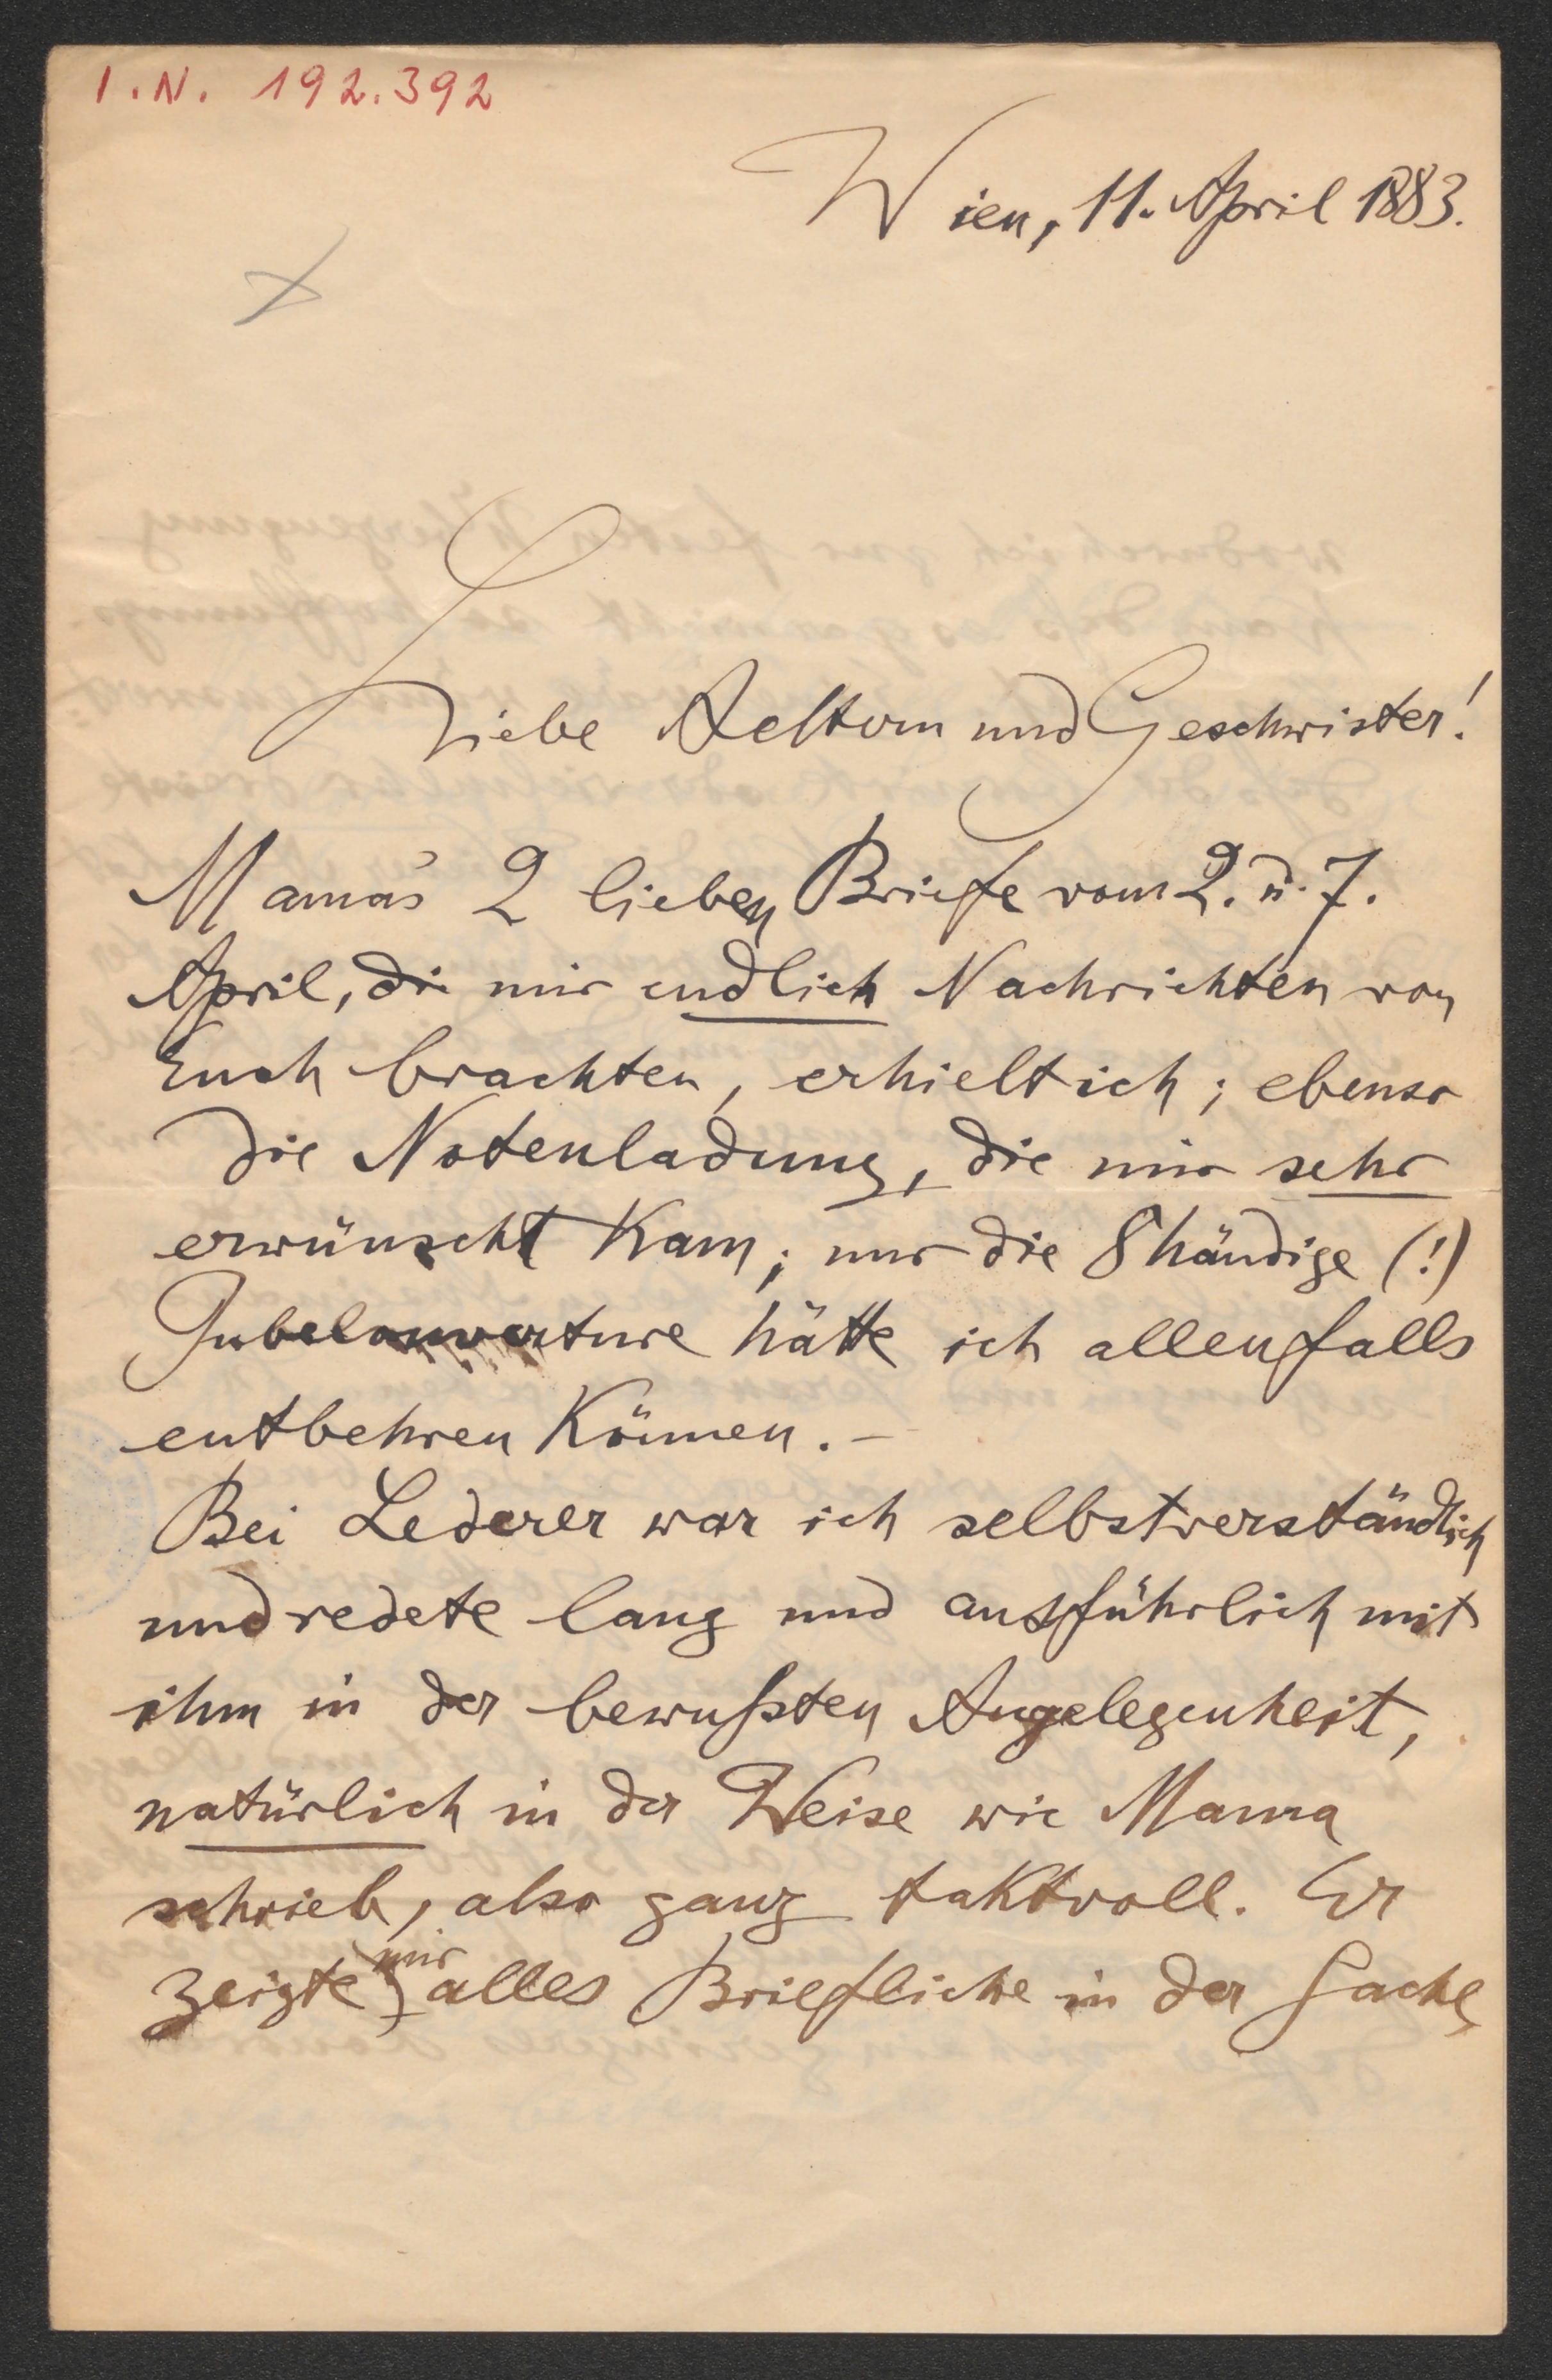 I.N. 192.392
Wien, 11. April 1883.
Liebe Aeltern und Geschwister!
Mama's 2 lieben Briefe vom 2. u. 7.
April, die mir endlich Nachrichten von
Euch brachten, erhielt ich; ebenso
die Notenladung, die mir sehr
erwünscht kam; nur die 8händige (!)
Jubelouverture hätte ich allenfalls
entbehren können. –
Bei Lederer war ich selbstverständlich
und redete lang und ausführlich mit
ihm in der bewußten Angelegenheit,
natürlich in der Weise wie Mama
schrieb, also ganz taktvoll. Er
zeigte mir alles Briefliche in der Sache,